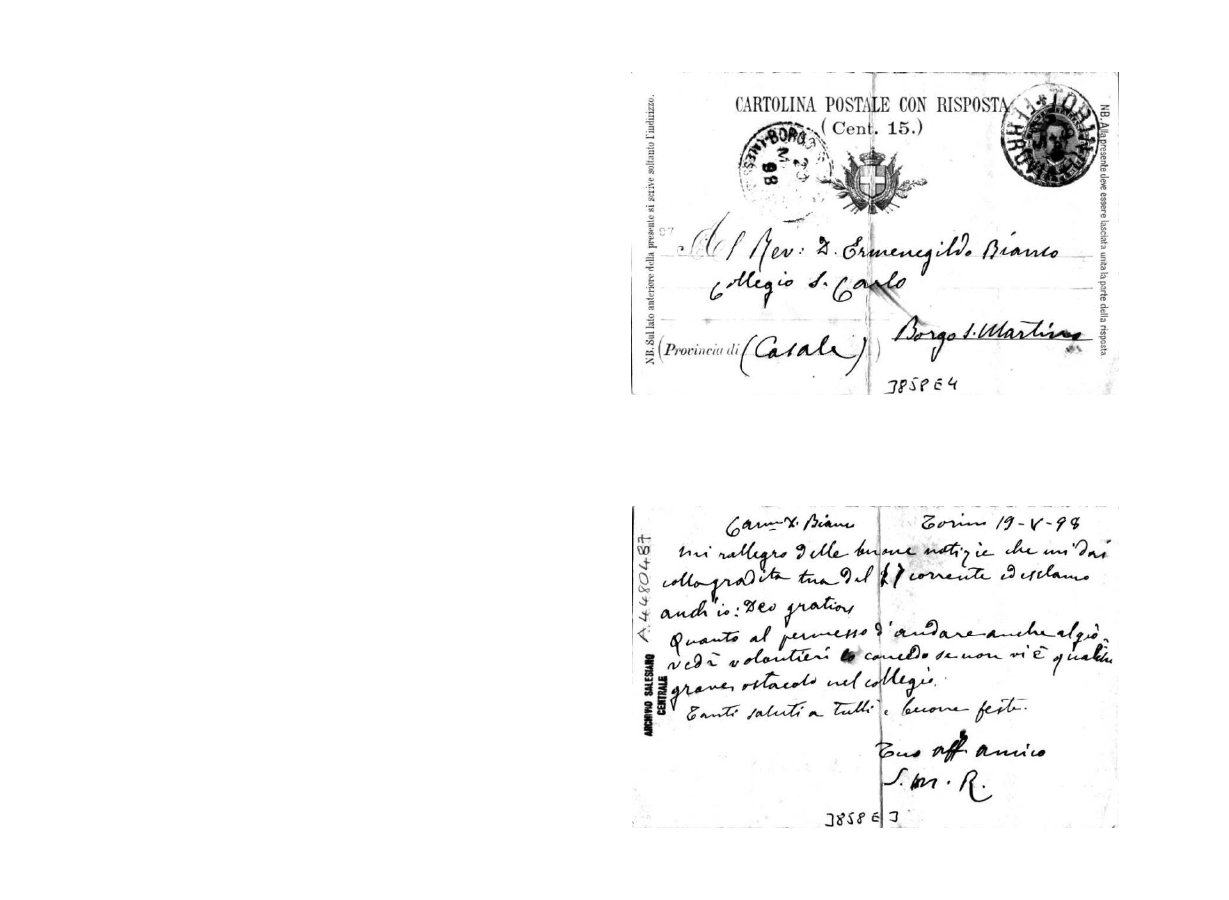 CARTOLINA POSTALE CON RISPOSTA
(Cent. 15.)
NB. Sul lato anteriore della presente si scrive soltanto l'indirizzo.
NB. Alla presente deve essere lasciata unita la parte della risposta
BORGO
23
M
98
TORINO FERROVIA
97
Al Rev: D. Ermenegildo Bianco
Collegio S. Carlo
Borgo S. Martino
(Provincia di (Casale) )
3858 E 4
Car.mo D. Bianco Torino 19-V-98
mi rallegro delle buone notizie che mi dai
colla gradita tua del 17 corrente ed esclamo
anch'io: Deo gratias
Quanto al permesso d'andare anche al gio-
vedì volontieri lo concedo se non vi è qualche
grave ostacolo nel collegio.
Tanti saluti a tutti e buone feste.
Tuo aff. amico
S. M. R.
3858 E 3
A.4480487
ARCHIVIO SALESIANO
CENTRALE